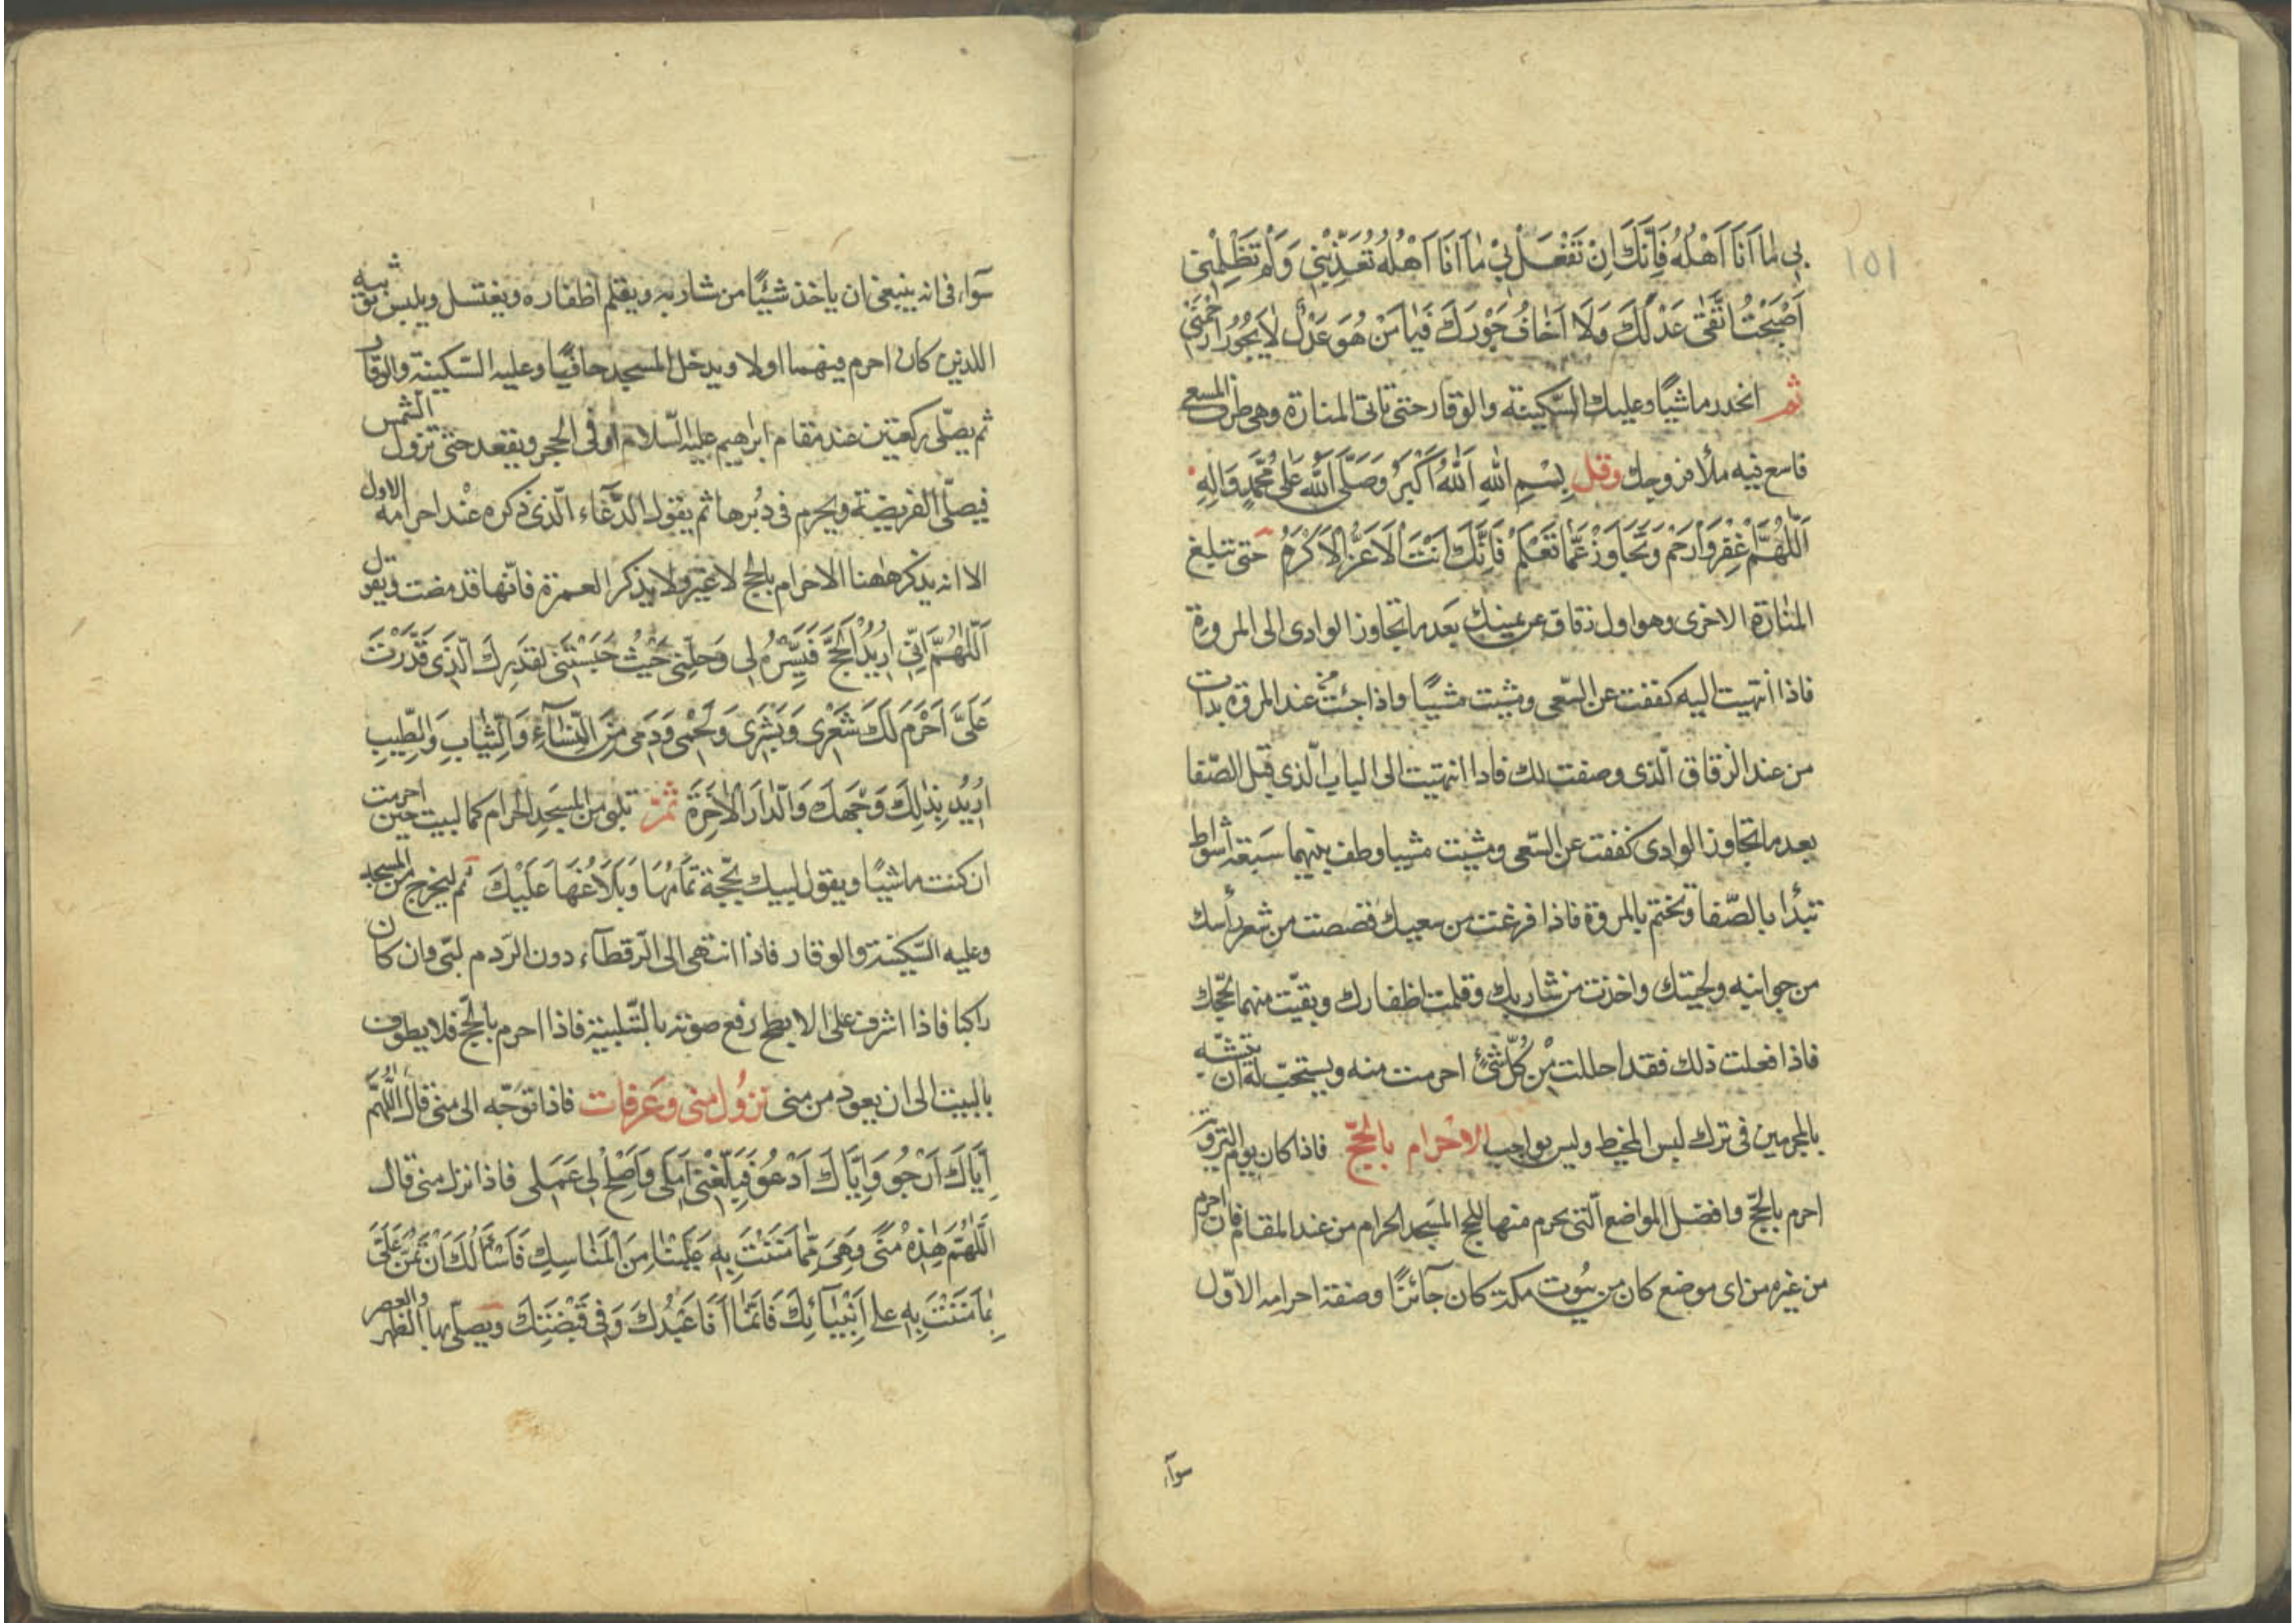 ١٥١
بِي مٰا اَنَا اَهْلُهُ فَاِنَّكَ اِنْ تَفْعَلْ بِيْ مٰا اَنَا اَهْلُهُ تُعَذِّبْنِي وَلَمْ تَظْلِمْنِي
اَصْبَحْتُ اتَّقٰى عَدْلَكَ وَلَا اَخٰافُ جَوْرَكَ فَيٰا مَنْ هُوَ عَدْلٌ لٰا يَجُورُ ارْحَمْنِي
ثم انحدر ماشيًا وعليك السّكينة والوقار حتى تاتى المنارة وهى طرف المسعى
فاسع فيه ملأ فروجك وقل بِسْمِ اللهِ اَللهُ اَكْبَرُ وَصَلَّى اللهُ عَلٰى مُحَمَّدٍ وَالِهِ
اَللّٰهُمَّ اغْفِرْ وَارْحَمْ وَتَجَاوَزْ عَمّٰا تَعْلَمُ فَاِنَّكَ اَنْتَ الْاَعَزُّ الْاَكْرَمُ حتى تبلغ
المنارة الاخرى وهو اول زقاق عن يمينك بعد ما تجاوز الوادى الى المروة
فاذا انتهيت اليه كففت عن السّعى ومشيت مشيًا واذا جئت من عند المروة بدات
من عند الزقاق الّذى وصفت لك فاذا انتهيت الى الباب الّذى قبل الصّفا
بعد ما تجاوز الوادى كففت عن السّعى ومشيت مشيا وطف بينهما سبعة اشواط
تبدأ بالصّفا وتختم بالمروة فاذا فرغت من سعيك قصصت من شعر رأسك
من جوانبه ولحيتك واخذت من شاربك وقلمت اظفارك وبقّيت منهما لحجّك
فاذا فعلت ذلك فقد احللت مِنْ كُلِّ شَئٍ احرمت منه ويستحبّ له ان يتشبّه
بالمحرمين فى ترك لبس المخيط وليس بواجب الاحرام بالحجّ فاذا كان يوم التروية
احرم بالحجّ وافضل المواضع الّتى يحرم منها للحج المسجد الحرام من عند المقام فان احرم
من غيره من اى موضع كان من بيوت مكة كان جآئزًا وصفة احرامه الاوّل
سوآء
سوآء فى انه ينبغى ان ياخذ شيئًا من شاربه ويقلم اظفاره ويغتسل ويلبس ثوبيه
اللذين كان احرم فيهما اولا ويدخل المسجد حافيًا وعليه السّكينة والوقار
ثم يصلّى ركعتين عند مقام ابراهيم عليه السّلام او فى الحجر ويقعد حتى تزول الشمس
فيصلّى الفريضة ويحرم فى دُبرها ثم يقول الدُّعاء الّذى ذكره عند احرامه الاول
الا انه يذكر هٰهنا الاحرام بالحج لا غير ولا يذكر العمرة فانّها قد مضت ويقول
اَللّٰهُمَّ اِنِّي اُرِيْدُ الْحَجَّ فَيَسِّرْهُ لِى وَحِلَّنِى حَيْثُ حَبَسْتَنِى لِقَدَرِكَ الَّذِى قَدَّرْتَ
عَلَىَّ اَحْرَمَ لَكَ شَعْرِى وَبَشَرِى وَلَحْمِى وَدَمِى مِنَ النِّسٰآءِ وَالثِّيٰابِ وَالطِّيبِ
اُرِيْدُ بِذٰلِكَ وَجْهَكَ وَالدّٰارَ الْاٰخِرَةَ ثمّ تلبى من المسجد الحرام كما لبيت حين احرمت
ان كنت ماشيًا ويقول لبيك بِحَجَّةٍ تَمَامُهَا وَبَلَاغُهَا عَلَيْكَ ثم ليخرج من المسجد
وعليه السّكينة والوقار فاذا انتهى الى الرّقطآء دون الرّدم لبّى وان كان
راكبا فاذا اشرف على الابطح رفع صوته بالتّلبية فاذا احرم بالحجّ فلا يطوف
بالبيت الى ان يعود من منى نزول منى وعرفات فاذا توجّه الى منى قال اَللّٰهُمَّ
اِيّٰاكَ اَرْجُو وَاِيّٰاكَ اَدْعُو فَبَلِّغْنِى اَمَلِى وَاَصْلِحْ لِى عَمَلِى فاذا نزل منى قال
اَللّٰهُمَّ هٰذِهْ مِنًى وَهِىَ مِمّٰا مَنَنْتَ بِهِ عَلَيْنٰا مِنَ الْمَنٰاسِكِ فَاَسْأَلُكَ اَنْ تَمُنَّ عَلَىَّ
بِمٰا مَنَنْتَ بِهِ على اَنْبِيٰآئِكَ فَاِنَّمٰا اَنَا عَبْدُكَ وَفِى قَبْضَتِكَ ويصلّى بها الظهر والعصر